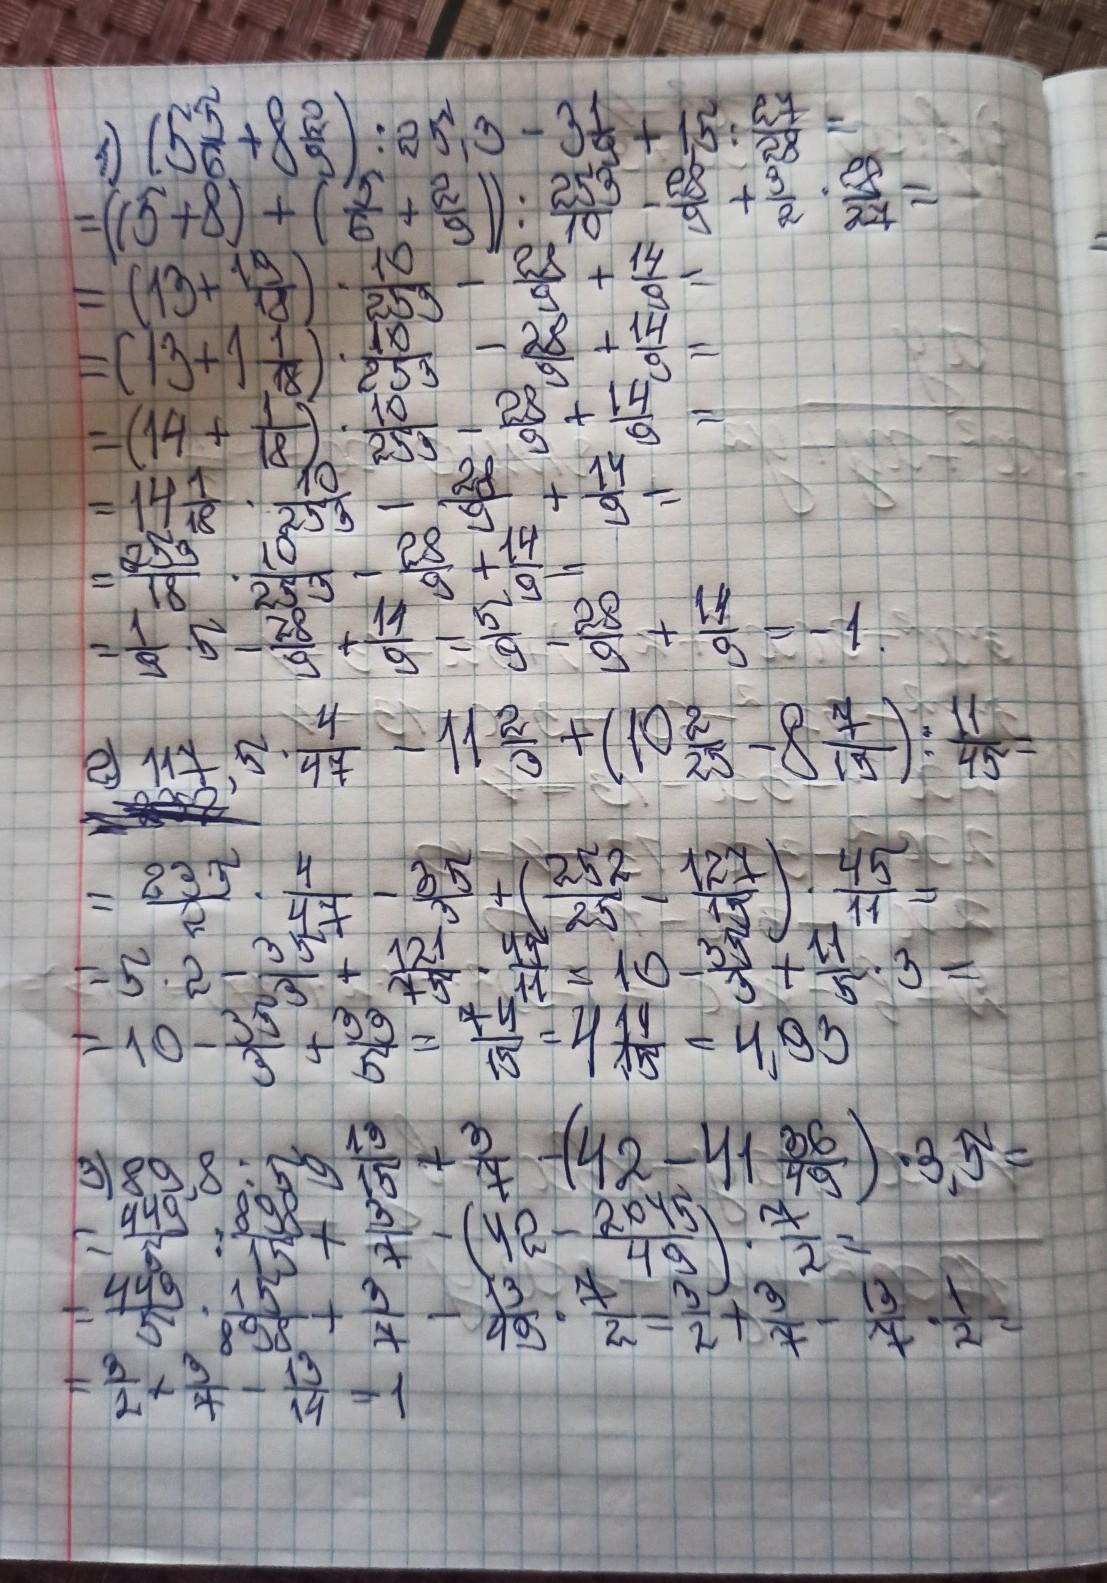 1) (5 5/6 + 8 2/9) : 25,3 - 3 1/9 + 1,5 : 27/28 =
= ((5+8) + (5/6 + 2/9)) : 253/10 - 28/9 + 3/2 · 28/27 =
= (13 + 19/18) · 10/253 - 28/9 + 14/9 =
= (13 + 1 1/18) · 10/253 - 28/9 + 14/9 =
= (14 + 1/18) · 10/253 - 28/9 + 14/9 =
= 14 1/18 · 10/253 - 28/9 + 14/9 =
= 253/18 · 10/253 - 28/9 + 14/9 =
= 1/9 · 5 - 28/9 + 14/9 = 5/9 - 28/9 + 14/9 = -1.
2) 117,5 · 4/47 - 11 2/3 + (10 2/25 - 8 7/15) : 11/45 =
= 235/2 · 4/47 - 35/3 + (252/25 - 127/15) · 45/11 =
= 5 · 2 - 35/3 + 121/75 · 45/11 = 10 - 35/3 + 11/5 · 3 =
= 10 - 35/3 + 33/5 = 74/15 = 4 14/15 = 4,93
3) 89,8 : 59 13/15 + 3/7 - (42 - 41 36/49) · 3,5 =
= 449/5 : 898/15 + 3/7 - (42 - 2045/49) · 7/2 =
= 449/5 · 15/898 + 3/7 - 13/49 · 7/2 = 3/2 + 3/7 - 13/7 · 1/2 =
= 3/2 + 3/7 - 13/14 = 1